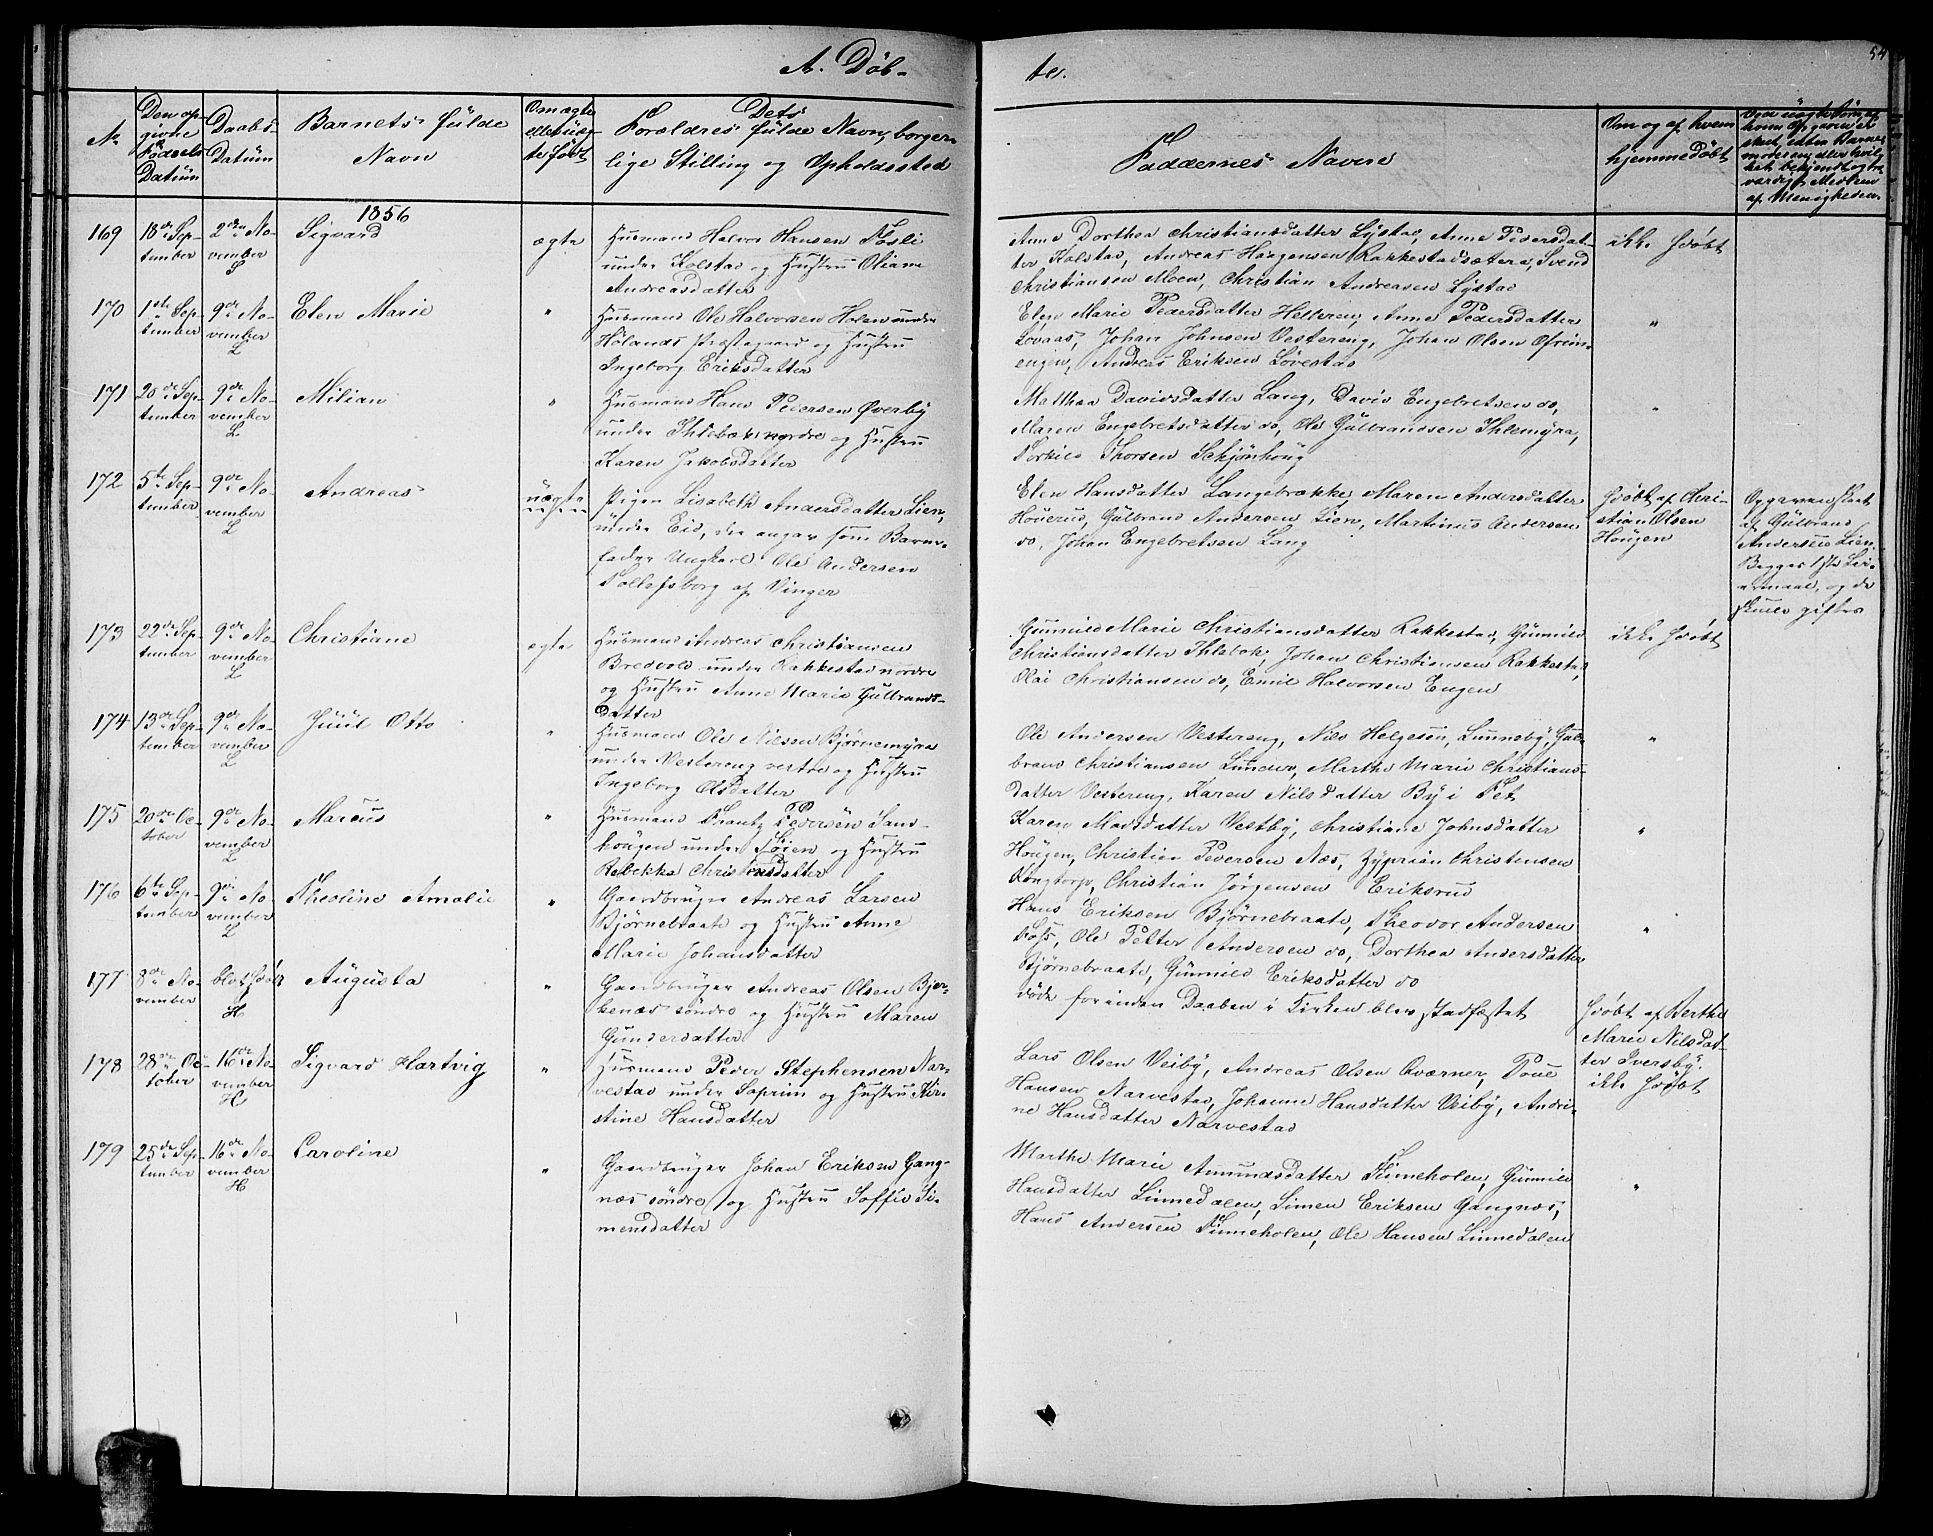 A. Døb-
te.
54
No
Den op-
givne
Fødsels
Datüm
Daabs-
Datüm
Barnets fülde
Navn
Om ægte
eller uæg-
te født
Dets
Forældres fülde Navn, borger-
lige Stilling og Opholdssted
Faddernes Navne
Om og af hvem
hjemmedøbt
1856
169
18de Sep-
tember
2den No-
vember
L
Sigvard
ægte
Husmand Halvor Hansen Fosli
under Kolstad og Hustru Oliane
Andreasdatter
Anne Dorthea Christiansdatter Lystad, Anne Pedersdat-
ter Kolstad, Andreas Haagensen Rakkestadsætera, Svend
Christiansen Moen, Christian Andreasen Lystad
ikke hdøbt
170
1ste Sep-
tember
9de No-
vember
L
Elen Marie
"
Husmand Ole Halvorsen Holen under
Hølands Præstegaard og Hustru
Ingeborg Eriksdatter
Elen Marie Pedersdatter Helgren, Anne Pedersdatter
Lovaas, Johan Johnsen Vestereng, Johan Olsen Ofrein-
engen, Andreas Eriksen Løvestad
"
171
20de Sep-
tember
9de No-
vember
L
Milian
"
Husmand Hans Pedersen Øverby
under Ihlebæk nordre og Hustru
Karen Jakobsdatter
Matthea Davidsdatter Lang, David Engebretsen do,
Maren Engebretsdatter do, Ole Gülbrandsen Ihlemyra,
Torkild Thorsen Schjønhoüg
"
172
5te Sep-
tember
9de No-
vember
L
Andreas
uægte
Pigen Lisabeth Andersdatter Lien,
ünder Eid, der angav som Barne-
fader Ungkarl Ole Andersen
Tollefsborg af Vinger
Elen Hansdatter Langebrække, Maren Andersdatter
Hoüerud, Gülbrand Andersen Lien, Martinus Andersen
do, Johan Engebretsen Lang
hdøbt af Chri-
stian Olsen
Hoügen
Opgaven skeet
af Gülbrand
Andersen Lien.
Begges 1ste Lei-
ermaal, og de
skulle giftes
173
22de Sep-
tember
9de No-
vember
L
Christiane
ægte
Husmand Andreas Christiansen
Bredvold under Rakkestad nordre
og Hustru Anne Marie Gulbrands-
datter
Gunnild Marie Christiansdatter Rakkestad, Gunnild
Christiansdatter Ihlebek, Johan Christiansen Rakkestad,
Olai Christiansen do, Emil Halvorsen Engen
ikke hdøbt
174
13de Sep-
tember
9de No-
vember
L
Jüül Otto
"
Husmand Ole Nilsen Bjørnemyra
under Vestereng vestre og Hustru
Ingeborg Olsdatter
Ole Andersen Vestereng, Nils Helgesen, Lunneby, Gul-
brand Christiansen Lunder, Marthe Marie Christians-
datter Vestereng, Karen Nilsdatter By i Fet
"
175
20de Oc-
tober
9de No-
vember
L
Marcus
"
Husmand Frantz Pedersen Sand-
hougen under Tøien og Hustru
Rebekka Christensdatter
Karen Madsdatter Vestby, Christiane Johnsdatter
Hougen, Christian Pedersen Næs, Zyprian Christensen
Kongtorp, Christian Jørgensen Eriksrud
"
176
6te Sep-
tember
9de No-
vember
L
Theoline Amalie
"
Gaardbruger Andreas Larsen
Bjørnebraate og Hustru Anne
Marie Johansdatter
Hans Eriksen Bjørnebraate, Theodor Andersen
Foss, Ole Petter Andersen do, Dorthea Andersdatter
Bjørnebraate, Gunnild Eriksdatter do
"
177
8de No-
vember
blot hdøbt
H
Augusta
"
Gaardbruger Andreas Olsen Bjer-
kenæs søndre og Hustru Maren
Gundersdatter
døde forinden Daaben i Kirken blev stadfæstet
hdøbt af Berthe
Marie Nilsdat-
ter Iversby.
178
28de Oc-
tober
16de No-
vember
H
Sigvard Hartvig
"
Husmand Peder Stephensen Nar-
vestad under Soprim og Hustru Kir-
stine Hansdatter
Lars Olsen Veiby, Andreas Olsen Qværner, Poul
Hansen Narvestad, Johanne Hansdatter Veiby, Andri-
ne Hansdatter Narvestad
ikke hdøbt
179
25de Sep-
tember
16de No-
vember
H
Caroline
"
Gaardbruger Johan Eriksen Gang-
næs søndre og Hustru Soffie Si-
mensdatter
Marthe Marie Amundsdatter Finneholen, Gunnild
Hansdatter Linnedalen, Simen Eriksen Gangnæs,
Hans Andersen Finneholen, Ole Hansen Linnedalen
"